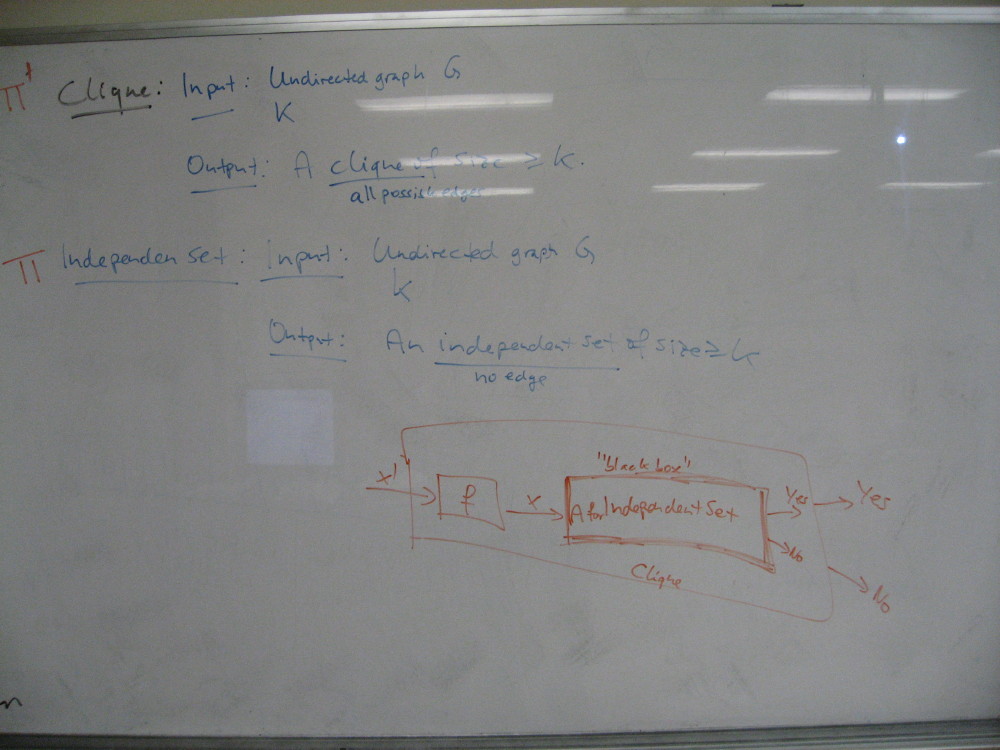 Π' Clique: Input: Undirected graph G
K
Output: A clique of size ≥ K.
all possib edges
Π Independen Set: Input: Undirected graph G
k
Output: An independent set of size ≥ k
no edge
"black box"
x' f x A for Independent Set Yes Yes
No
Clique
No